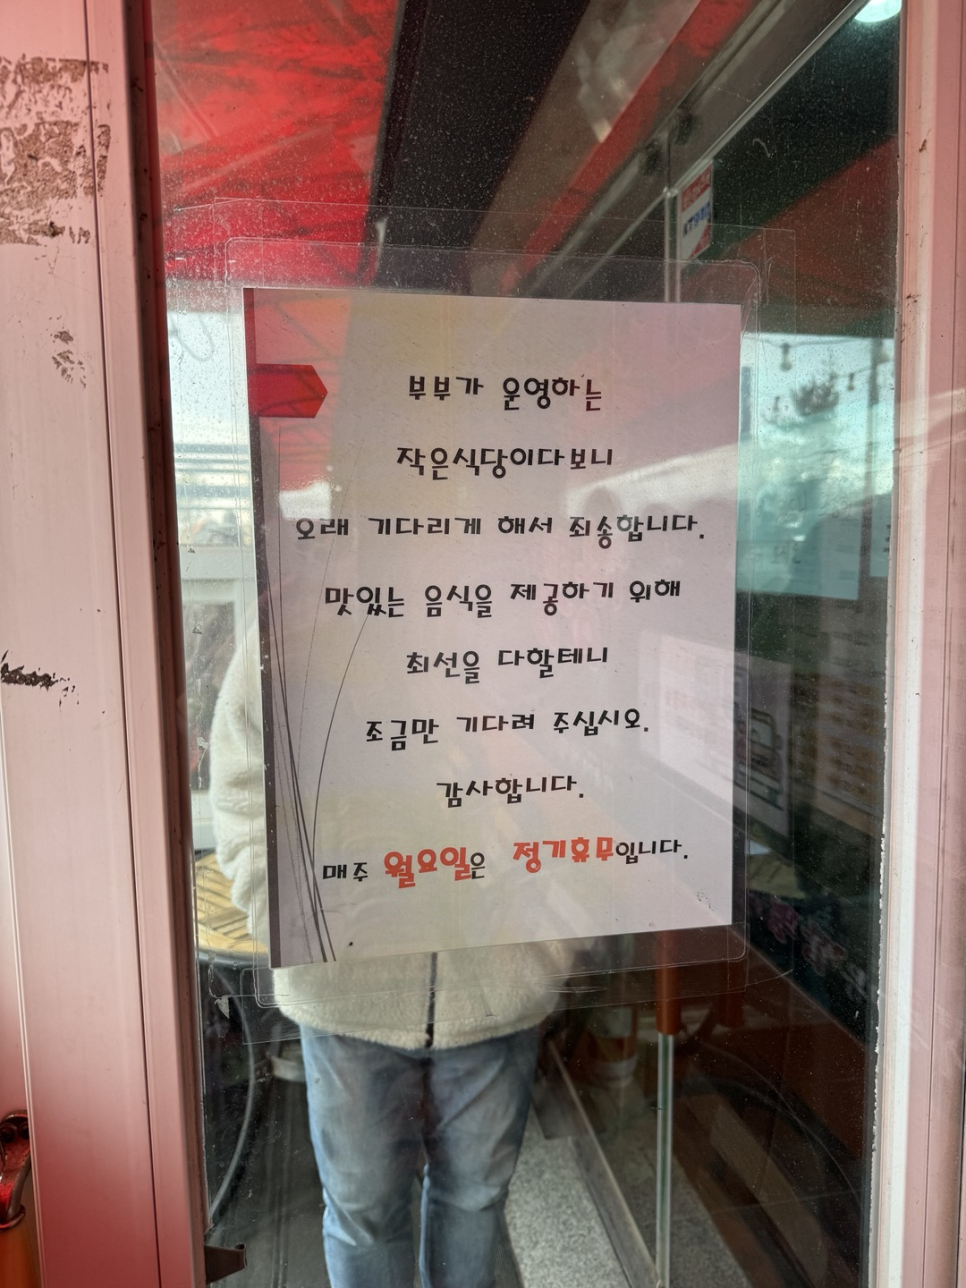 부부가 운영하는
작은식당이다보니
오래 기다리게 해서 죄송합니다.
맛있는 음식을 제공하기 위해
최선을 다할테니
조금만 기다려 주십시오.
감사합니다.
매주 월요일은 정기휴무입니다.